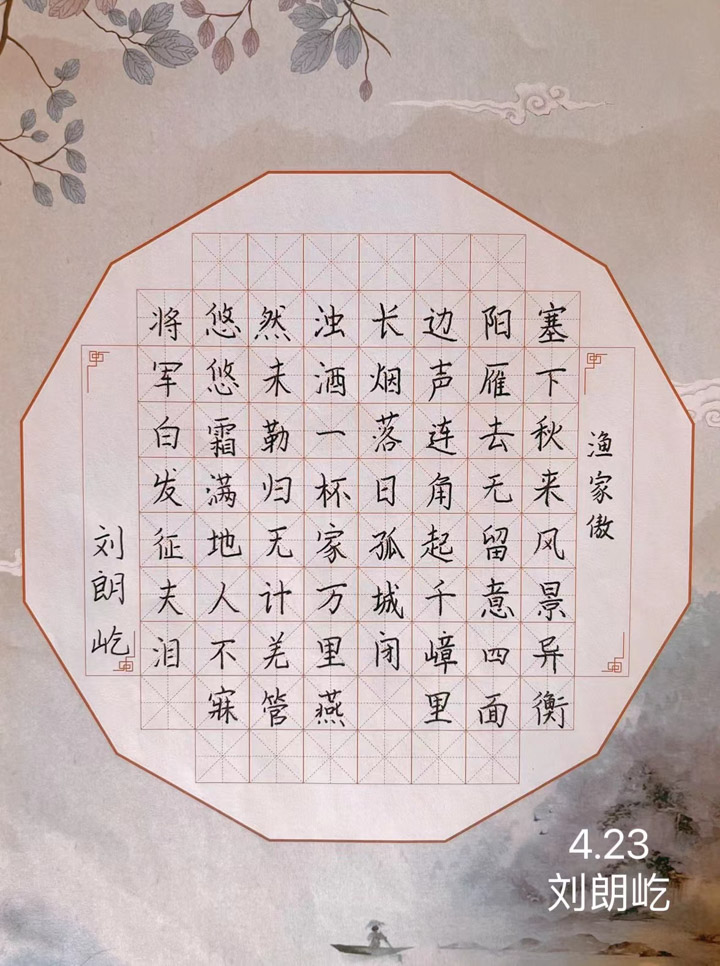 渔家傲
塞下秋来风景异衡
阳雁去无留意四面
边声连角起千嶂里
长烟落日孤城闭
浊酒一杯家万里燕
然未勒归无计羌管
悠悠霜满地人不寐
将军白发征夫泪
刘朗屹
4.23
刘朗屹